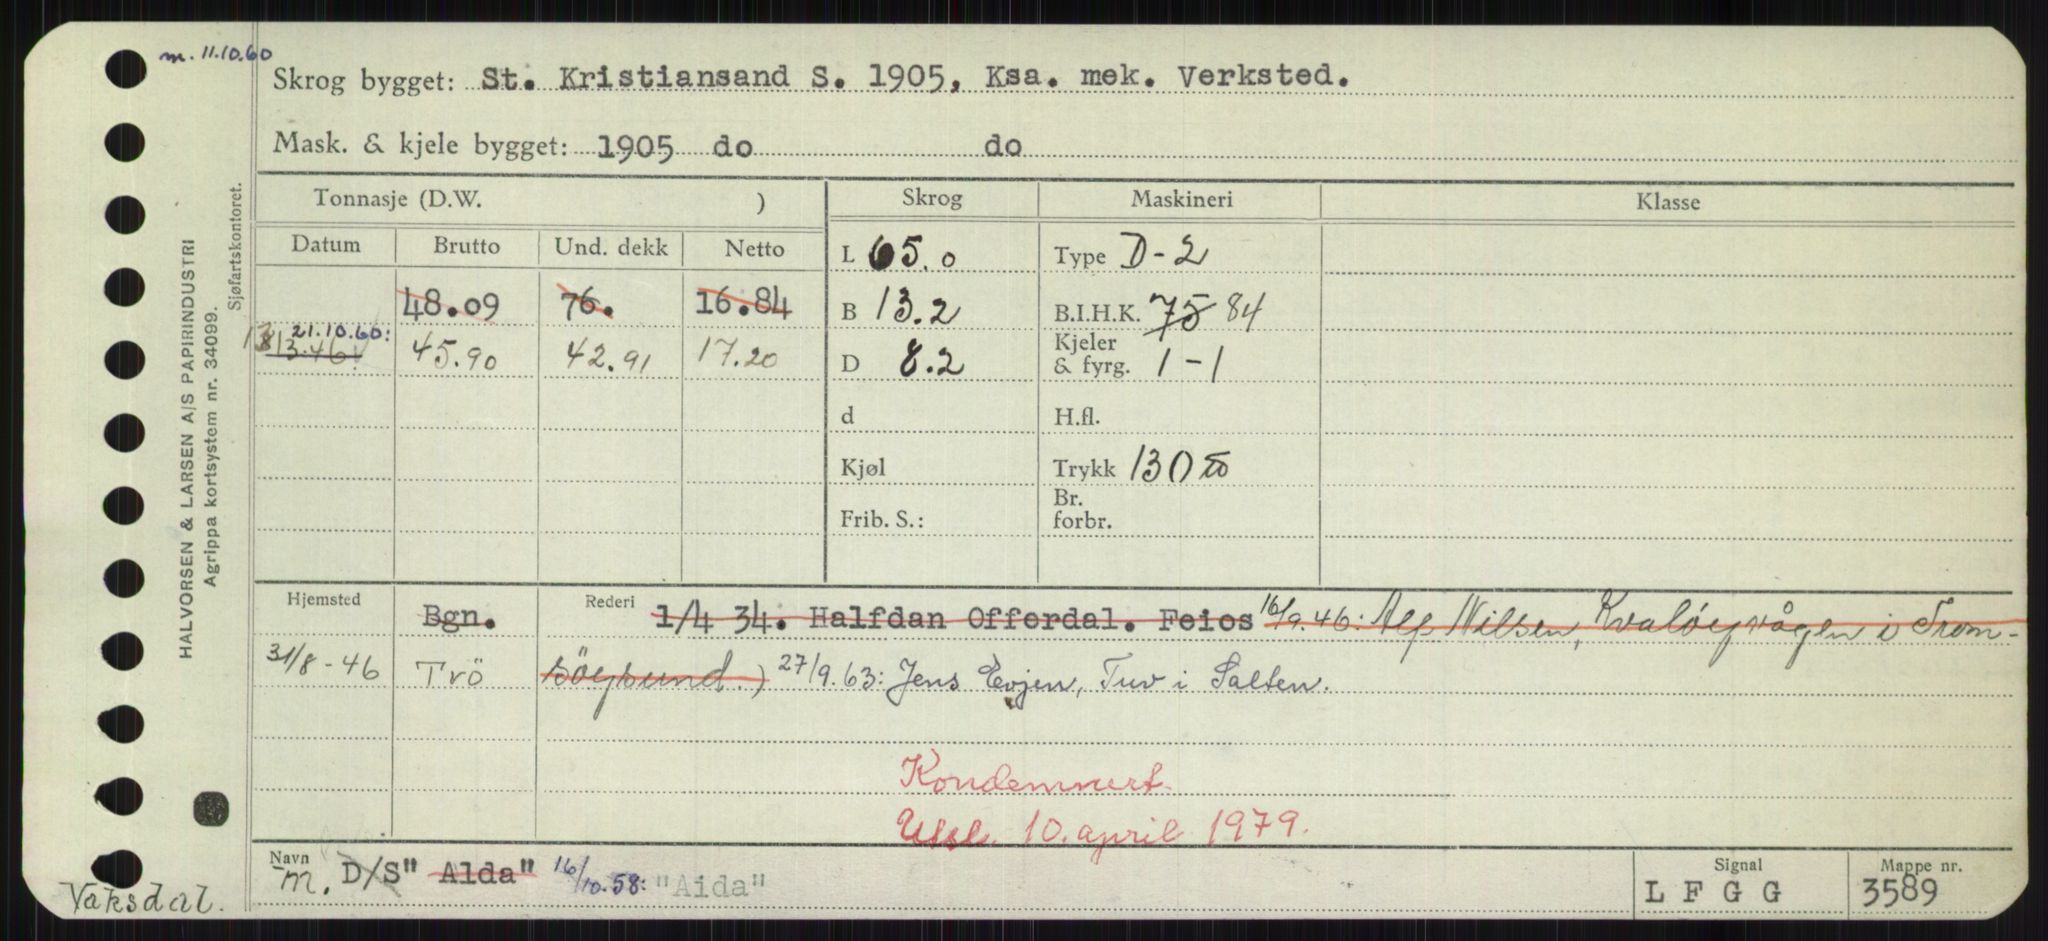 m. 11.10.60
Skrog bygget: St. Kristiansand S. 1905, Ksa. mek. Verksted.
Mask. & kjele bygget: 1905 do do
HALVORSEN & LARSEN A/S PAPIRINDUSTRI
Agrippa kortsystem nr. 34099.
Sjøfartskontoret.
Tonnasje (D.W. ) Skrog Maskineri Klasse
Datum Brutto Und. dekk Netto
L 65.0 Type D-2
48.09 76. 16.84 B 13.2 B.I.H.K. 75 84
21.10.60:
13.46 45.90 42.91 17.20 D 8.2 Kjeler & fyrg. 1-1
d H.fl.
Kjøl Trykk 130
Frib. S.: Br. forbr.
Hjemsted Bgn. Rederi 1/4 34. Halfdan Offerdal. Feios 16/9.46: Alf Nilsen, Kvaløyvågen i Trom-
31/8-46 Trö söysund.) 27/9.63: Jens Evjen, Tuv i Salten.
Kondemnert.
10. april 1979.
Navn Signal Mappe nr.
m. D/S "Alda" 16/10.58: "Aida" L F G G 3589
Vaksdal.